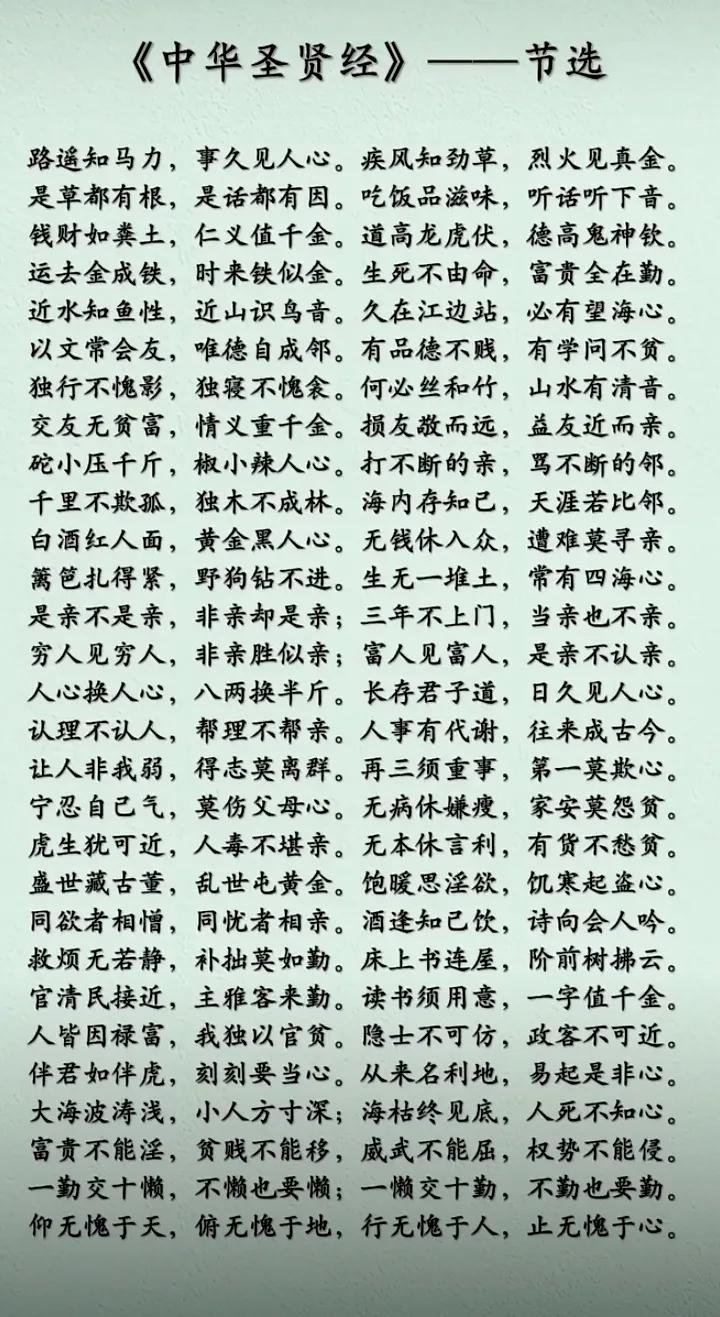 《中华圣贤经》——节选
路遥知马力，事久见人心。疾风知劲草，烈火见真金。
是草都有根，是话都有因。吃饭品滋味，听话听下音。
钱财如粪土，仁义值千金。道高龙虎伏，德高鬼神钦。
运去金成铁，时来铁似金。生死不由命，富贵全在勤。
近水知鱼性，近山识鸟音。久在江边站，必有望海心。
以文常会友，唯德自成邻。有品德不贱，有学问不贫。
独行不愧影，独寝不愧衾。何必丝和竹，山水有清音。
交友无贫富，情义重千金。损友敬而远，益友近而亲。
砣小压千斤，椒小辣人心。打不断的亲，骂不断的邻。
千里不欺孤，独木不成林。海内存知己，天涯若比邻。
白酒红人面，黄金黑人心。无钱休入众，遭难莫寻亲。
篱笆扎得紧，野狗钻不进。生无一堆土，常有四海心。
是亲不是亲，非亲却是亲；三年不上门，当亲也不亲。
穷人见穷人，非亲胜似亲；富人见富人，是亲不认亲。
人心换人心，八两换半斤。长存君子道，日久见人心。
认理不认人，帮理不帮亲。人事有代谢，往来成古今。
让人非我弱，得志莫离群。再三须重事，第一莫欺心。
宁忍自己气，莫伤父母心。无病休嫌瘦，家安莫怨贫。
虎生犹可近，人毒不堪亲。无本休言利，有货不愁贫。
盛世藏古董，乱世屯黄金。饱暖思淫欲，饥寒起盗心。
同欲者相憎，同忧者相亲。酒逢知己饮，诗向会人吟。
救烦无若静，补拙莫如勤。床上书连屋，阶前树拂云。
官清民接近，主雅客来勤。读书须用意，一字值千金。
人皆因禄富，我独以官贫。隐士不可仿，政客不可近。
伴君如伴虎，刻刻要当心。从来名利地，易起是非心。
大海波涛浅，小人方寸深；海枯终见底，人死不知心。
富贵不能淫，贫贱不能移，威武不能屈，权势不能侵。
一勤交十懒，不懒也要懒；一懒交十勤，不勤也要勤。
仰无愧于天，俯无愧于地，行无愧于人，止无愧于心。